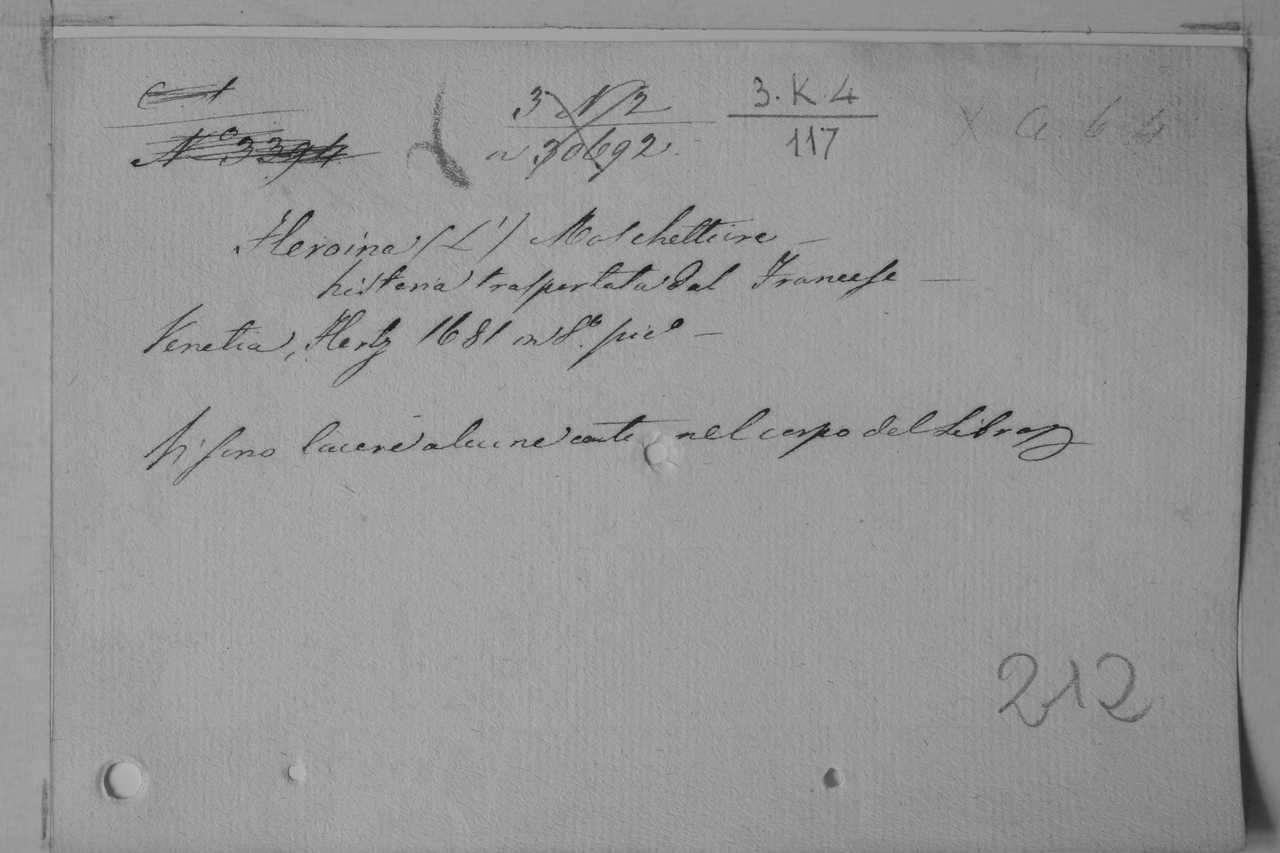 N.º 3394
3 N 2
n 30692
3.K.4
117
X a 6 4
Heroina (L') Moschettiera —
historia trasportata dal Francese —
Venetia, Hertz 1681 in 8.º pic.º —
Vi sono lacere alcune carte nel corpo del Libro
212